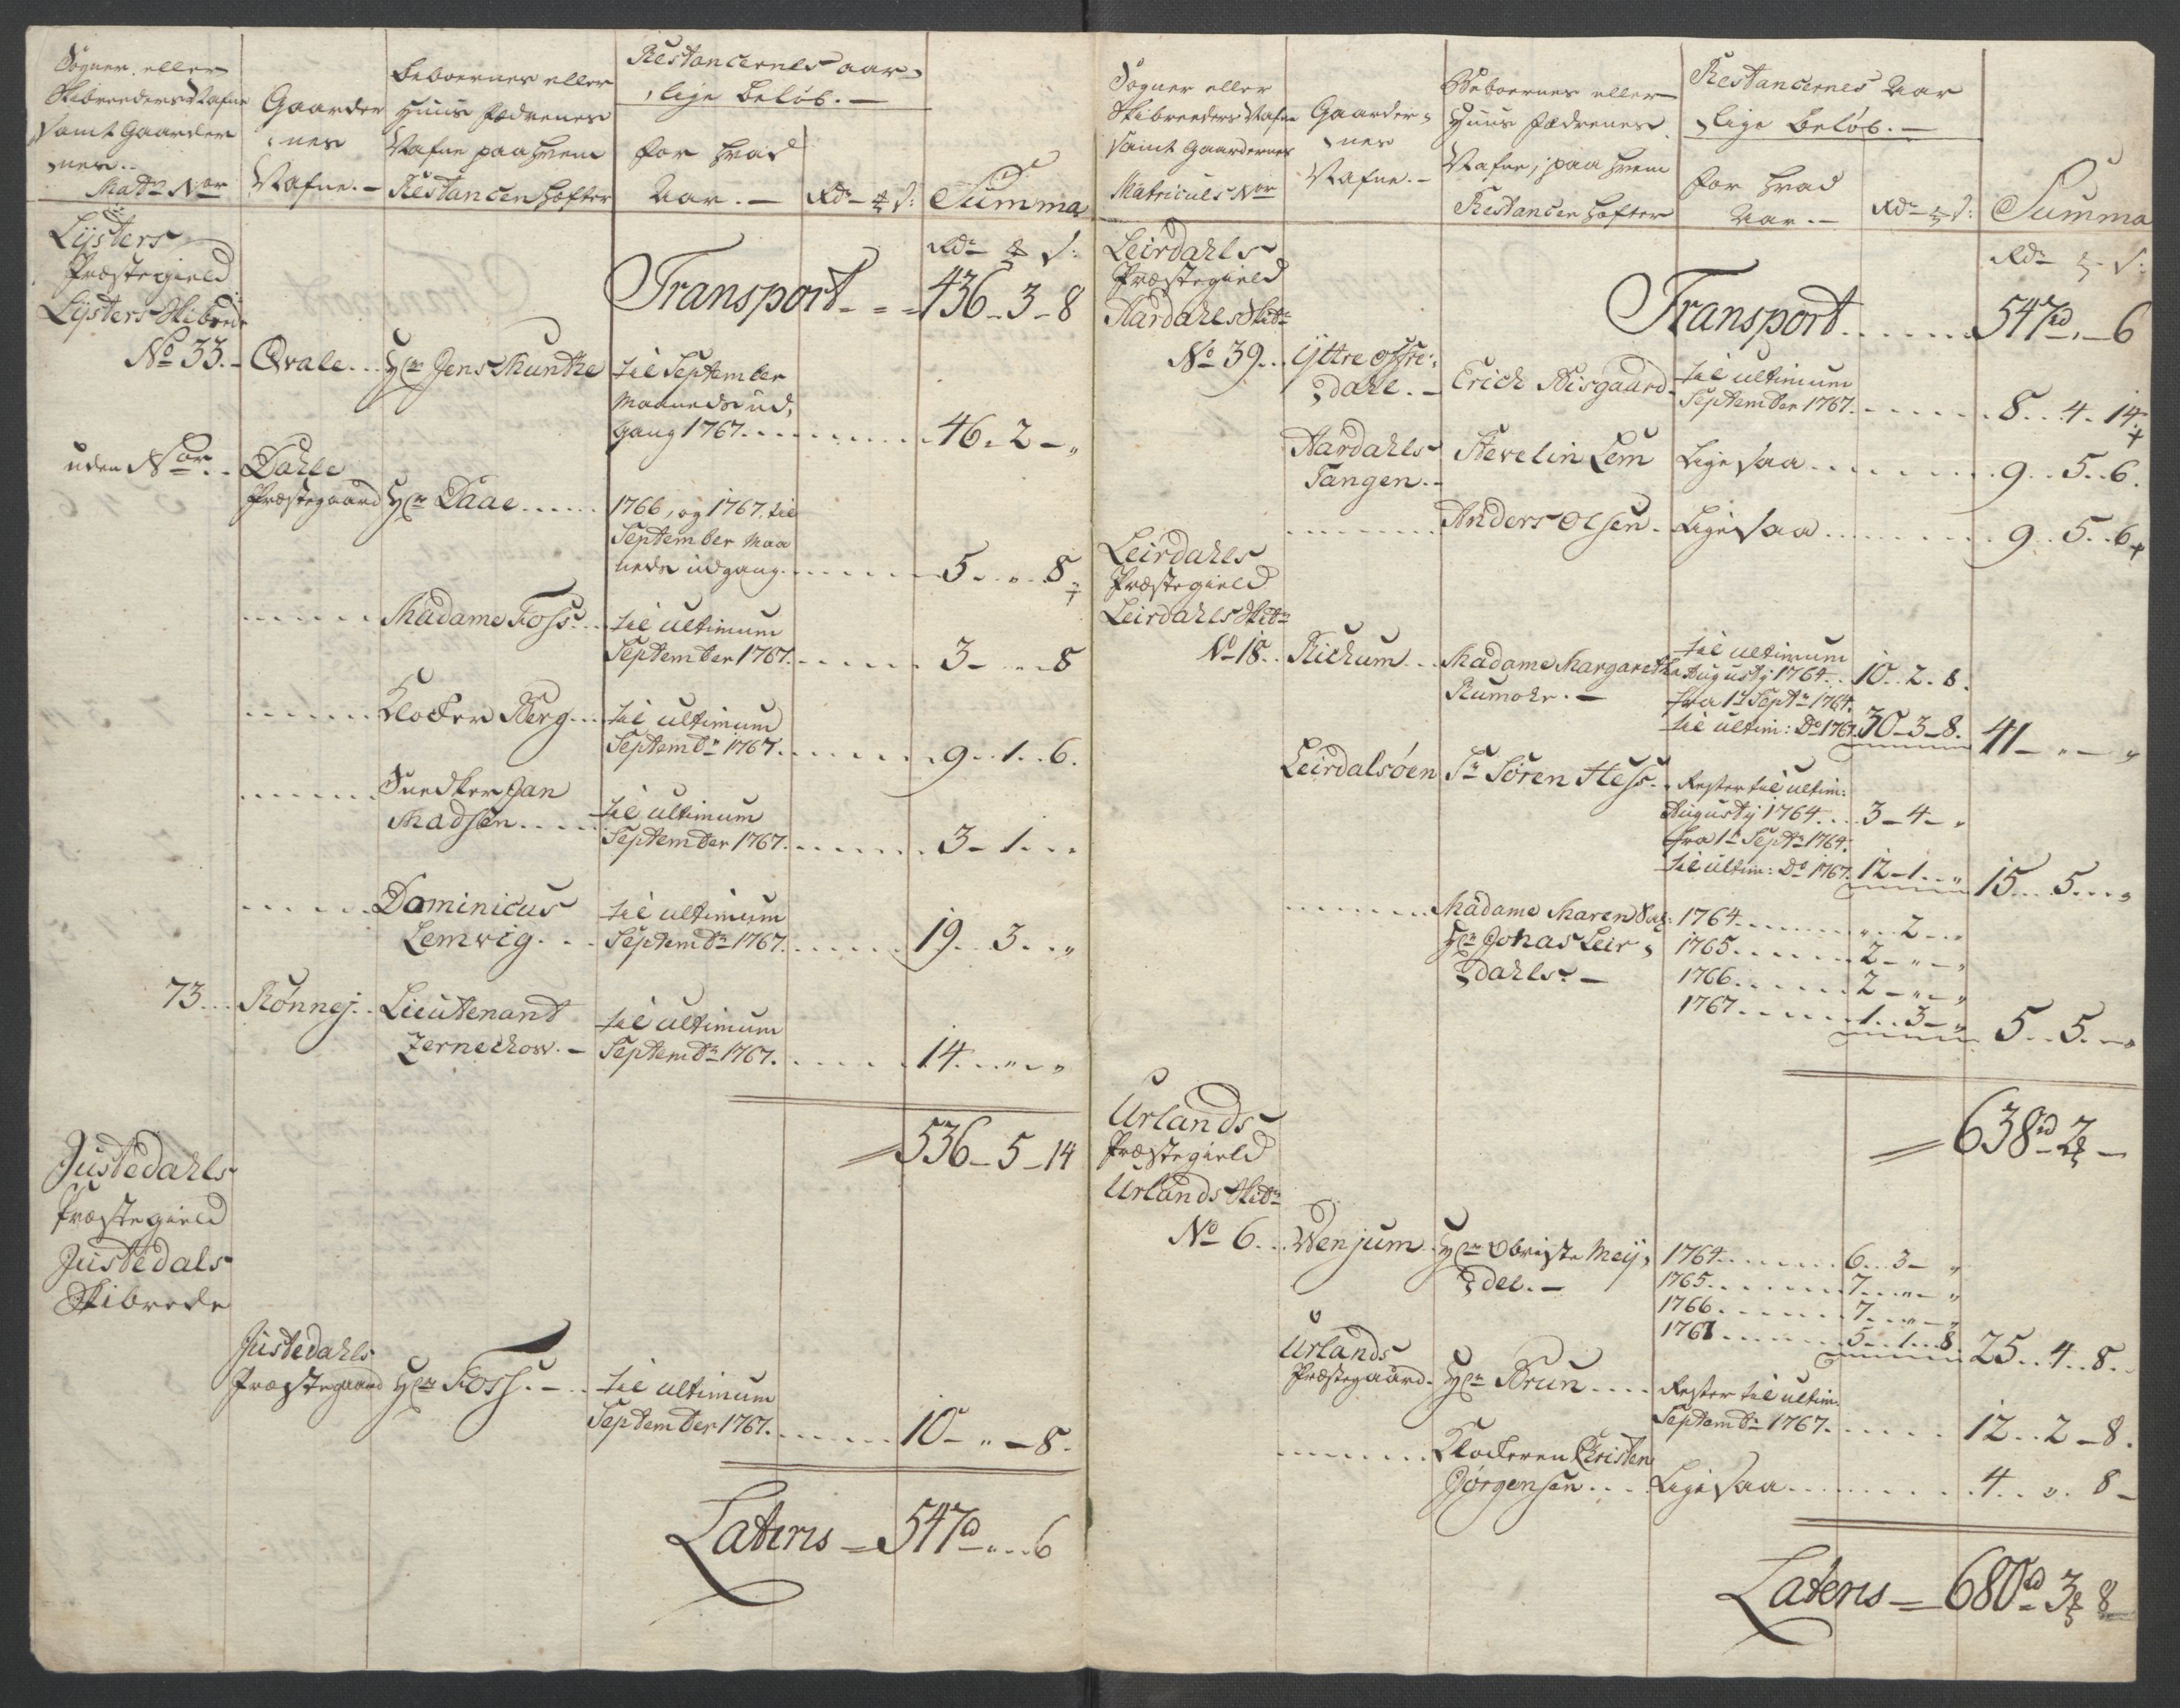 Sogner eller
Skibreeders Nafne
samt Gaarder
nes
Matr. Nor
Gaarder
nes
Nafne.
Beboernes eller
Huus Fædrenes
Nafne paa hvem
Restancen hæfter
Restancernes aar
lige Beløb.
for hvad
Aar.
Rdr ℔ s:
Summa
Rdr ℔ s:
Lÿsters
Præstegield
Lÿsters Skibrede
Transport - - = 436 - 3 - 8
No 33. Qvale... Hr Jens Munthe til September
Maaneds ud,
gang 1767. 46. 2 - „
uden Nor. Dahle
Præstegaard Hr Daae 1766, og 1767, til
September Maa
neds udgang. 5. „. 8
Madame Foss til ultimum
September 1767. 3 - „ - 8
Klocker Berg til ultimum
Septembr 1767. 9. 1. 6.
Snedker Jan
Madsen til ultimum
September 1767. 3 - 1. „
Dominicus
Lemvig til ultimum
Septembr 1767. 19. 3. „
73. Rønnej. Lieutenant
Zernechow. til ultimum
Septembr 1767. 14. „. „
= 536 - 5 - 14
Justedahls
Præstegield
Justedals
Skibrede
Justedahls
Præstegaard Hr Foss. til ultimum
September 1767. 10 - „ - 8.
Lateris = 547rd „ 6
Sogner eller
Skibreeders Nafne
samt Gaardernes
Matriculs Nor
Gaarder,
nes
Nafne.
Beboernes eller
Huus Fædrenes
Nafne, paa hvem
Restancen hæfter
Restancernes Aar
lige Beløb.
for hvad
Aar.
Rdr ℔ s:
Summa
Rdr ℔ s:
Leirdahls
Præstegield
Aardahls Skibr
Transport 547rd „ 6
No 39. Ÿttre Offre,
dahl. Erich Bisgaard til ultimum
September 1767. 8. 4. 14.
Aardahls
Tangen. Hevelin Lem Lige saa 9. 5. 6.
Anders Olsen. Lige saa 9. 5. 6
Leirdahls
Præstegield
Leirdahls Skibr
No 18. Richum Madame Margaretha
Rumohr. til ultimum
Augustÿ 1764. 10. 2. 8.
fra 1t Septr 1764.
til ultim: Do 1767. 30 - 3 - 8. 41 - „ - „
Leirdalsøen Sr Søren Hess. Rester til ultim:
Augustÿ 1764. 3 - 4 - „
fra 1t Septr 1764.
til ultim: Do 1767. 12 - 1. „ 15. 5. „
Madame Maren Sal:
Hr Jonas Leir,
dahls. 1764. „. 2. „
1765. 2 - „ - „
1766. 2 - „ - „
1767. 1. 3 - „ 5. 5. „
= 638rd 2℔ -
Urlands
Præstegield
Urlands Skibr
No 6. Wenjum Hr Obriste Meÿ,
del. 1764. 6. 3 - „
1765. 7. „ - „
1766. 7. „ - „
1767. 5. 1. 8 25. 4. 8.
Urlands
Præstegaard. Hr Brun Rester til ultim.
Septembr 1767. 12. 2 - 8.
Klockeren Christen
Jørgensen Lige saa 4. „. 8 -
Lateris = 680rd 3℔ 8